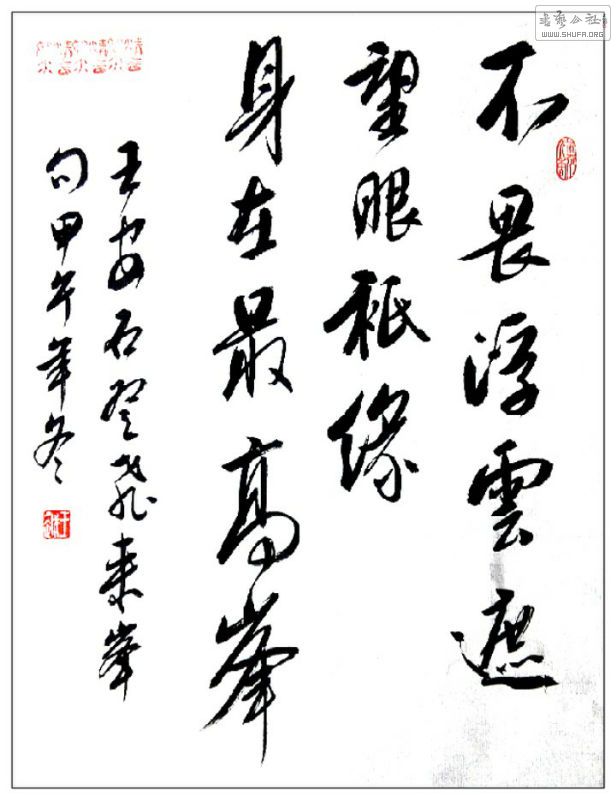 不畏浮雲遮
望眼祇緣
身在最高峯
王安石登飛來峯
句甲午年冬
书艺公社
WWW.SHUFA.ORG